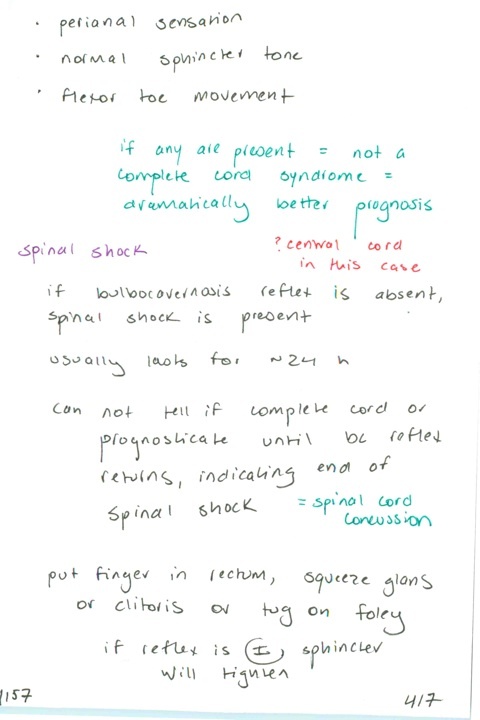 · perianal sensation
· normal sphincter tone
· flexor toe movement
if any are present = not a
complete cord syndrome =
dramatically better prognosis
spinal shock
? central cord
in this case
if bulbocovernosis reflex is absent,
spinal shock is present
usually lasts for ~24 h
can not tell if complete cord or
prognosticate until bc reflex
returns, indicating end of
spinal shock
= spinal cord
concussion
put finger in rectum, squeeze glans
or clitoris or tug on foley
if reflex is , sphincter
will tighten
1157
417